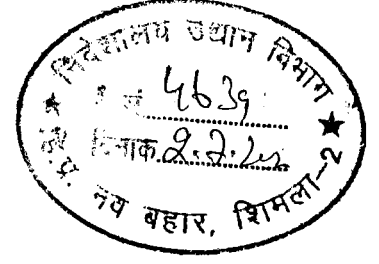 निदेशालय उद्यान विभाग
सं 4639
दिनांक 2.7.
हि.प्र. नव बहार, शिमला-2